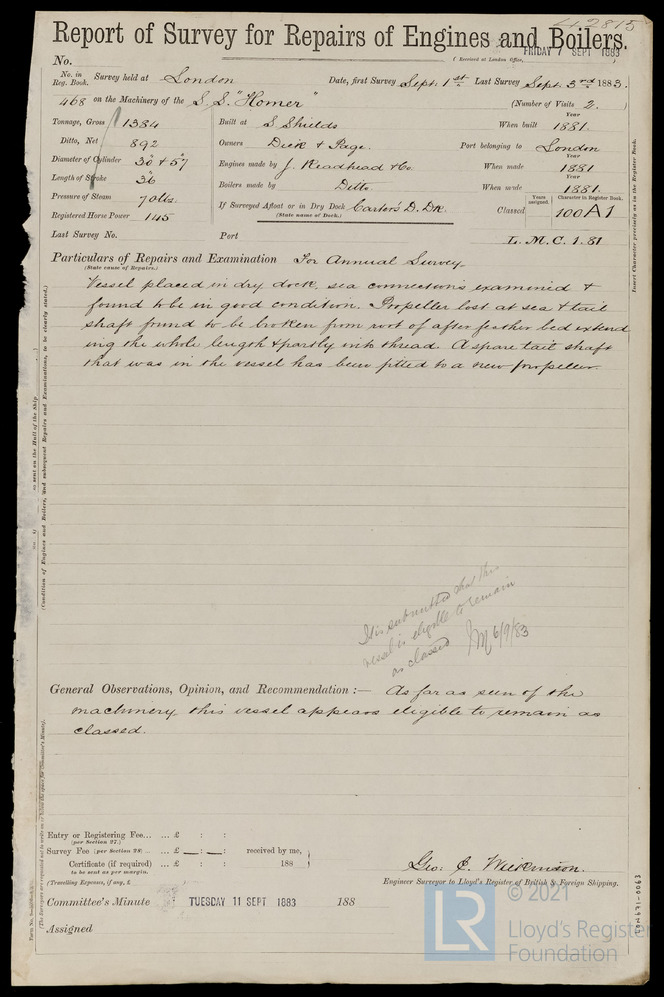 42815
Report of Survey for Repairs of Engines and Boilers.
(Received at London Office, FRIDAY 7 SEPT 1883
No.
No. in Reg. Book. Survey held at London Date, first Survey Sept. 1st Last Survey Sept. 3rd 1883.
468 on the Machinery of the S.S. "Homer" (Number of Visits 2.)
Tonnage, Gross 1384 Built at S. Shields When built Year 1881.
Ditto, Net 892 Owners Dick & Page. Port belonging to London
Diameter of Cylinder 30" & 57" Engines made by J. Readhead & Co. When made Year 1881
Length of Stroke 36" Boilers made by Ditto. When made Year 1881.
Pressure of Steam 70 lbs. If Surveyed Afloat or in Dry Dock Carter's D. Dk. Classed Years assigned. Character in Register Book. 100 A1
Registered Horse Power 145 (State name of Dock.)
Last Survey No. Port L.M.C. 1.81
Particulars of Repairs and Examination For Annual Survey
(State cause of Repairs.)
Vessel placed in dry dock, sea connections examined &
found to be in good condition. Propeller lost at sea & tail
shaft found to be broken from root of after feather bed extend
ing the whole length & partly into thread. A spare tail shaft
that was in the vessel has been fitted to a new propeller.
Insert Character precisely as in the Register Book.
(Condition of Engines and Boilers, and subsequent Repairs and Examinations, to be clearly stated.)
It is submitted that this
vessel is eligible to remain
as classed 6/9/83
General Observations, Opinion, and Recommendation :— As far as seen of the
machinery this vessel appears eligible to remain as
classed.
Entry or Registering Fee... ... £ : :
(per Section 27.)
Survey Fee (per Section 28) ... £ : : received by me,
Certificate (if required) ... £ : : 188
to be sent as per margin.
(Travelling Expenses, if any, £ )
Geo. C. Wilkinson.
Engineer Surveyor to Lloyd's Register of British & Foreign Shipping.
Committee's Minute TUESDAY 11 SEPT 1883 188
Assigned
LON671-0063
LR
© 2021
Lloyd's Register
Foundation